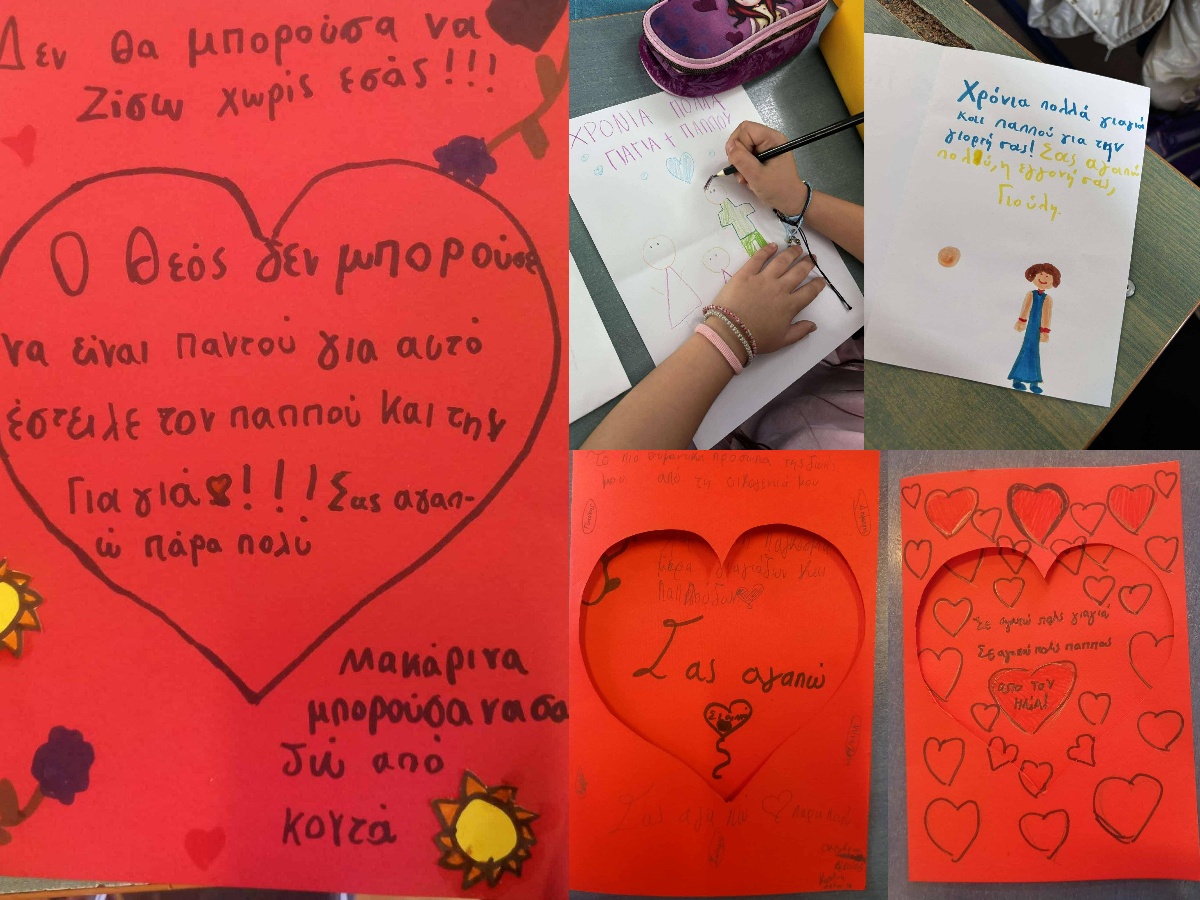 Δεν θα μπορούσα να
Ζίσω χωρίς εσάς!!!
Ο Θεός δεν μπορούσε
να είναι παντού για αυτό
έστειλε τον παππού και την
Για γιά!!! Σας αγαπ-
ώ πάρα πολύ
Μακάρι να
μπορούσα να σα
δώ από
κοντά
ΧΡΟΝΙΑ ΠΟΛΛΑ
ΓΙΑΓΙΑ + ΠΑΠΠΟΥ
Χρόνια πολλά γιαγιά
και παππού για την
γιορτή σας! Σας αγαπώ
πολύ, η εγγονή σας,
Γιούλη.
Τα πιο σημαντικά πρόσωπα της ζωή
μου από τη οικογένειά μου
Παγκόσμια
μέρα γιαγιάδων και
παππούδων
Σας αγαπώ
Σας αγαπώ πάρα πολύ
Σε αγαπώ πολύ γιαγιά
Σε αγαπώ πολύ παππού
από τον
ΗΛΙΑ!